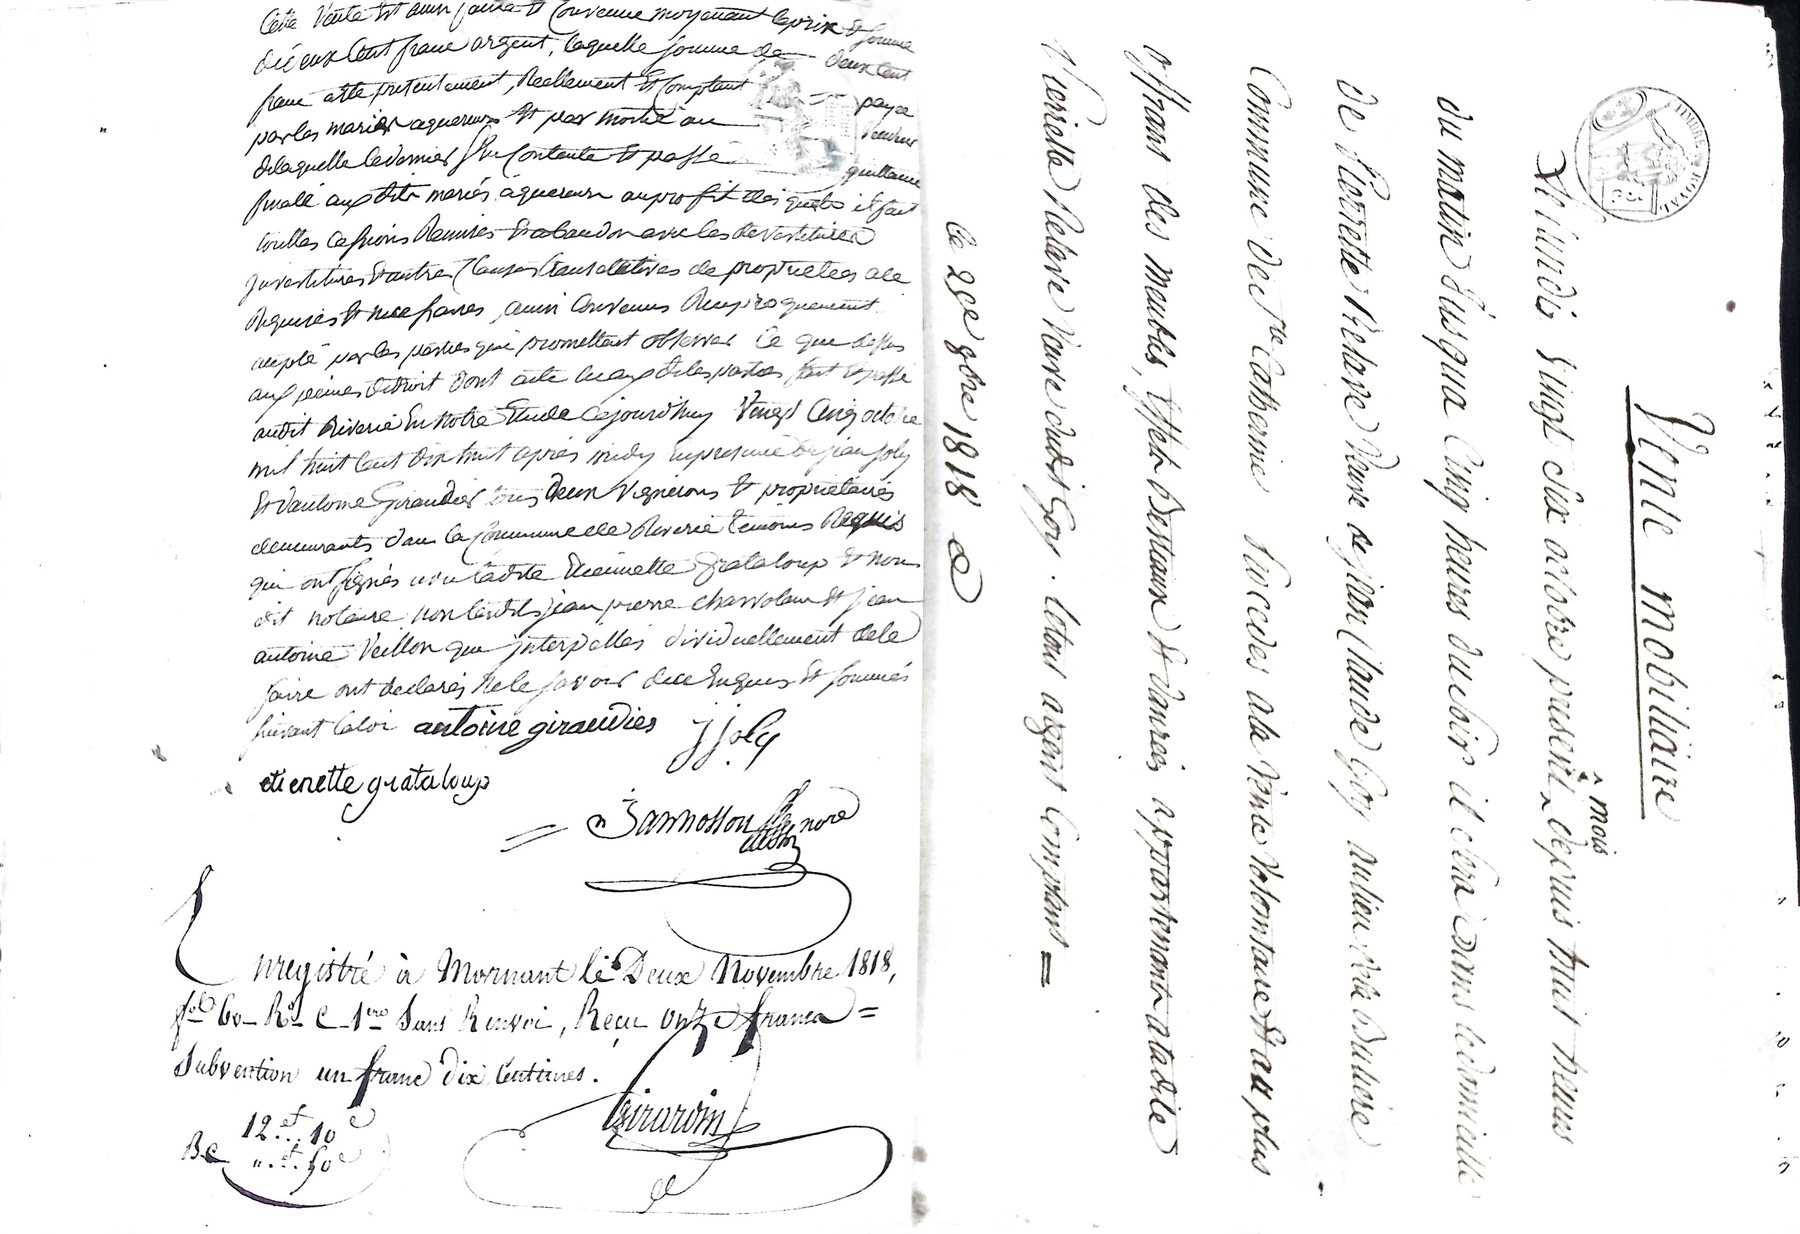 Cette Vente est ainsi faitte et Convenue moyenant le prix et somme
de deux Cent franc argent, laquelle somme de deux Cent
franc a été presentement, Reellement et Comptant payée
par les mariés aquereurs et par moitié au vendeur
de laquelle ce dernier s'en Contente et passe quittance
finale aux dits mariés aquereurs au profit des quels il fait
touttes Cessions Remises et abandon avec les devestitures
Investitures et autres Clauses translatives de proprietées a ce
Requises et necessaires, ainsi Convenus Reciproquement
accepté par les parties qui promettent observer Ce que dessus
aux peines de droit dont acte lu aux dites parties fait et passé
audit Riverie En notre Etude Cejourd'huy Vingt Cinq octobre
mil huit Cent dix huit après midy en presence de jean joly
Et d'antoine Giraudier tous deux Vignerons et proprietaires
demeurants dans la Commune de Riverie temoins Requis
qui ont signés avec ladite Etiennette grataloup et nous
dit notaire non lesdits jean pierre et jean
antoine Veillon que interpellés dividuellement de le
faire ont declarés ne le savoir de ce Enquis et sommés
suivant la loi antoine giraudier j joly
etienette grataloup
Jannosson nore
Enregistré à Mornant le Deux Novembre 1818,
fol. 60 Ro C 1ere Sans Renvoi, Reçu onze francs =
Subvention un franc dix Centimes.
Girardin
12 f. 10 c
Be " f. 50 c
le 2 9bre 1818
TIMBRE ROYAL
Vente mobiliaire
Le lundi Vingt Six octobre present ^ mois ^ depuis huit heures
du matin Jusqua Cinq heures du soir il sera dans le domicile
de Pierrette Relave Veuve de jean Claude Goy au lieu de la
Commune de Ste Catherine Procedés a la Vente Volontaire et au plus
offrant des meubles, Effets Bestiaux et danrés appartenant a ladite
Pierrette Relave Veuve dudit Goy. le tout argent Comptant =